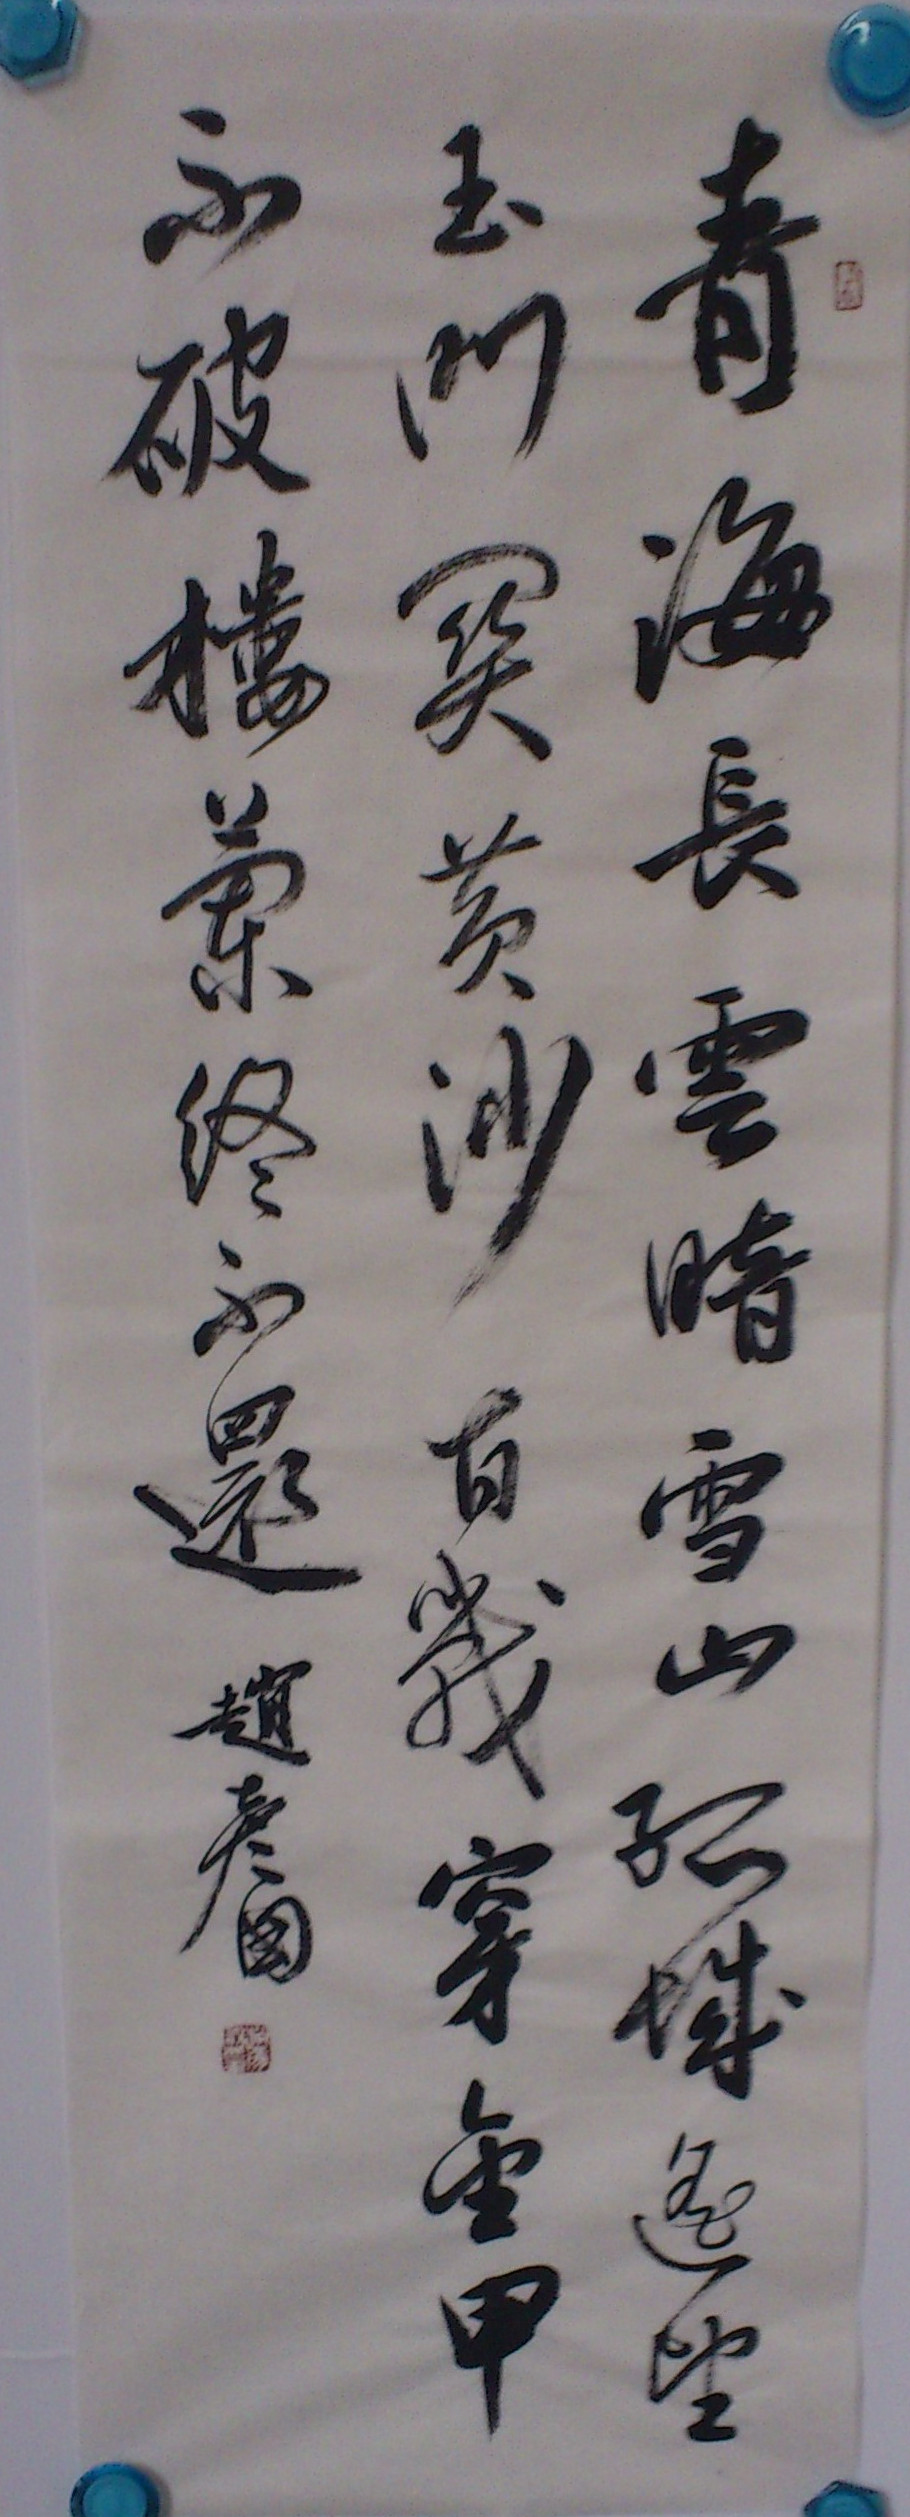 青海長雲暗雪山孤城遙望
玉門関黄沙百戰穿金甲
不破樓蘭終不還 趙彦國